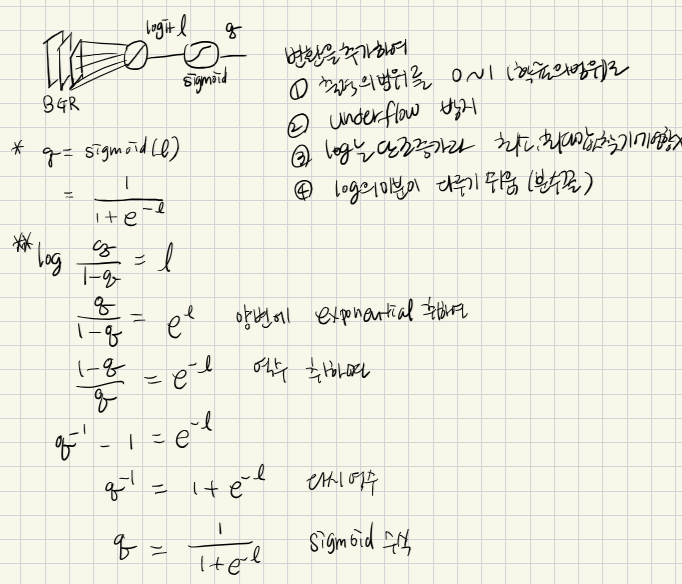 logit l
q
sigmoid
BGR
변환을 추가하여
① 출력의 범위를 0~1 (확률의 범위)로
② underflow 방지
③ log는 단조증가라 최소, 최대값 찾기에 영향x
④ log의 미분이 다루기 쉬움 (분수꼴)
* q = sigmoid(l)
= 1 / (1 + e^-l)
** log q / (1-q) = l
q / (1-q) = e^l 양변에 exponential 취하여
(1-q) / q = e^-l 역수 취하면
q^-1 - 1 = e^-l
q^-1 = 1 + e^-l 다시 역수
q = 1 / (1 + e^-l) sigmoid 수식